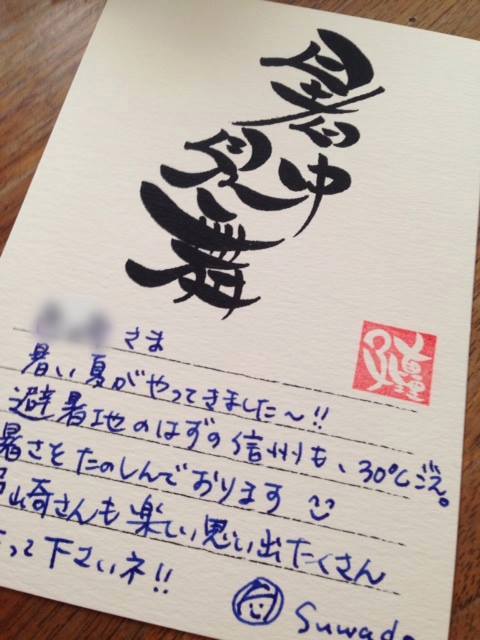 暑中
見舞
さま
暑い夏がやってきました〜!!
避暑地のはずの信州も、30℃ごえ。
暑さをたのしんでおります
崎さんも楽しい思い出たくさん
って下さいネ!!
Suwad